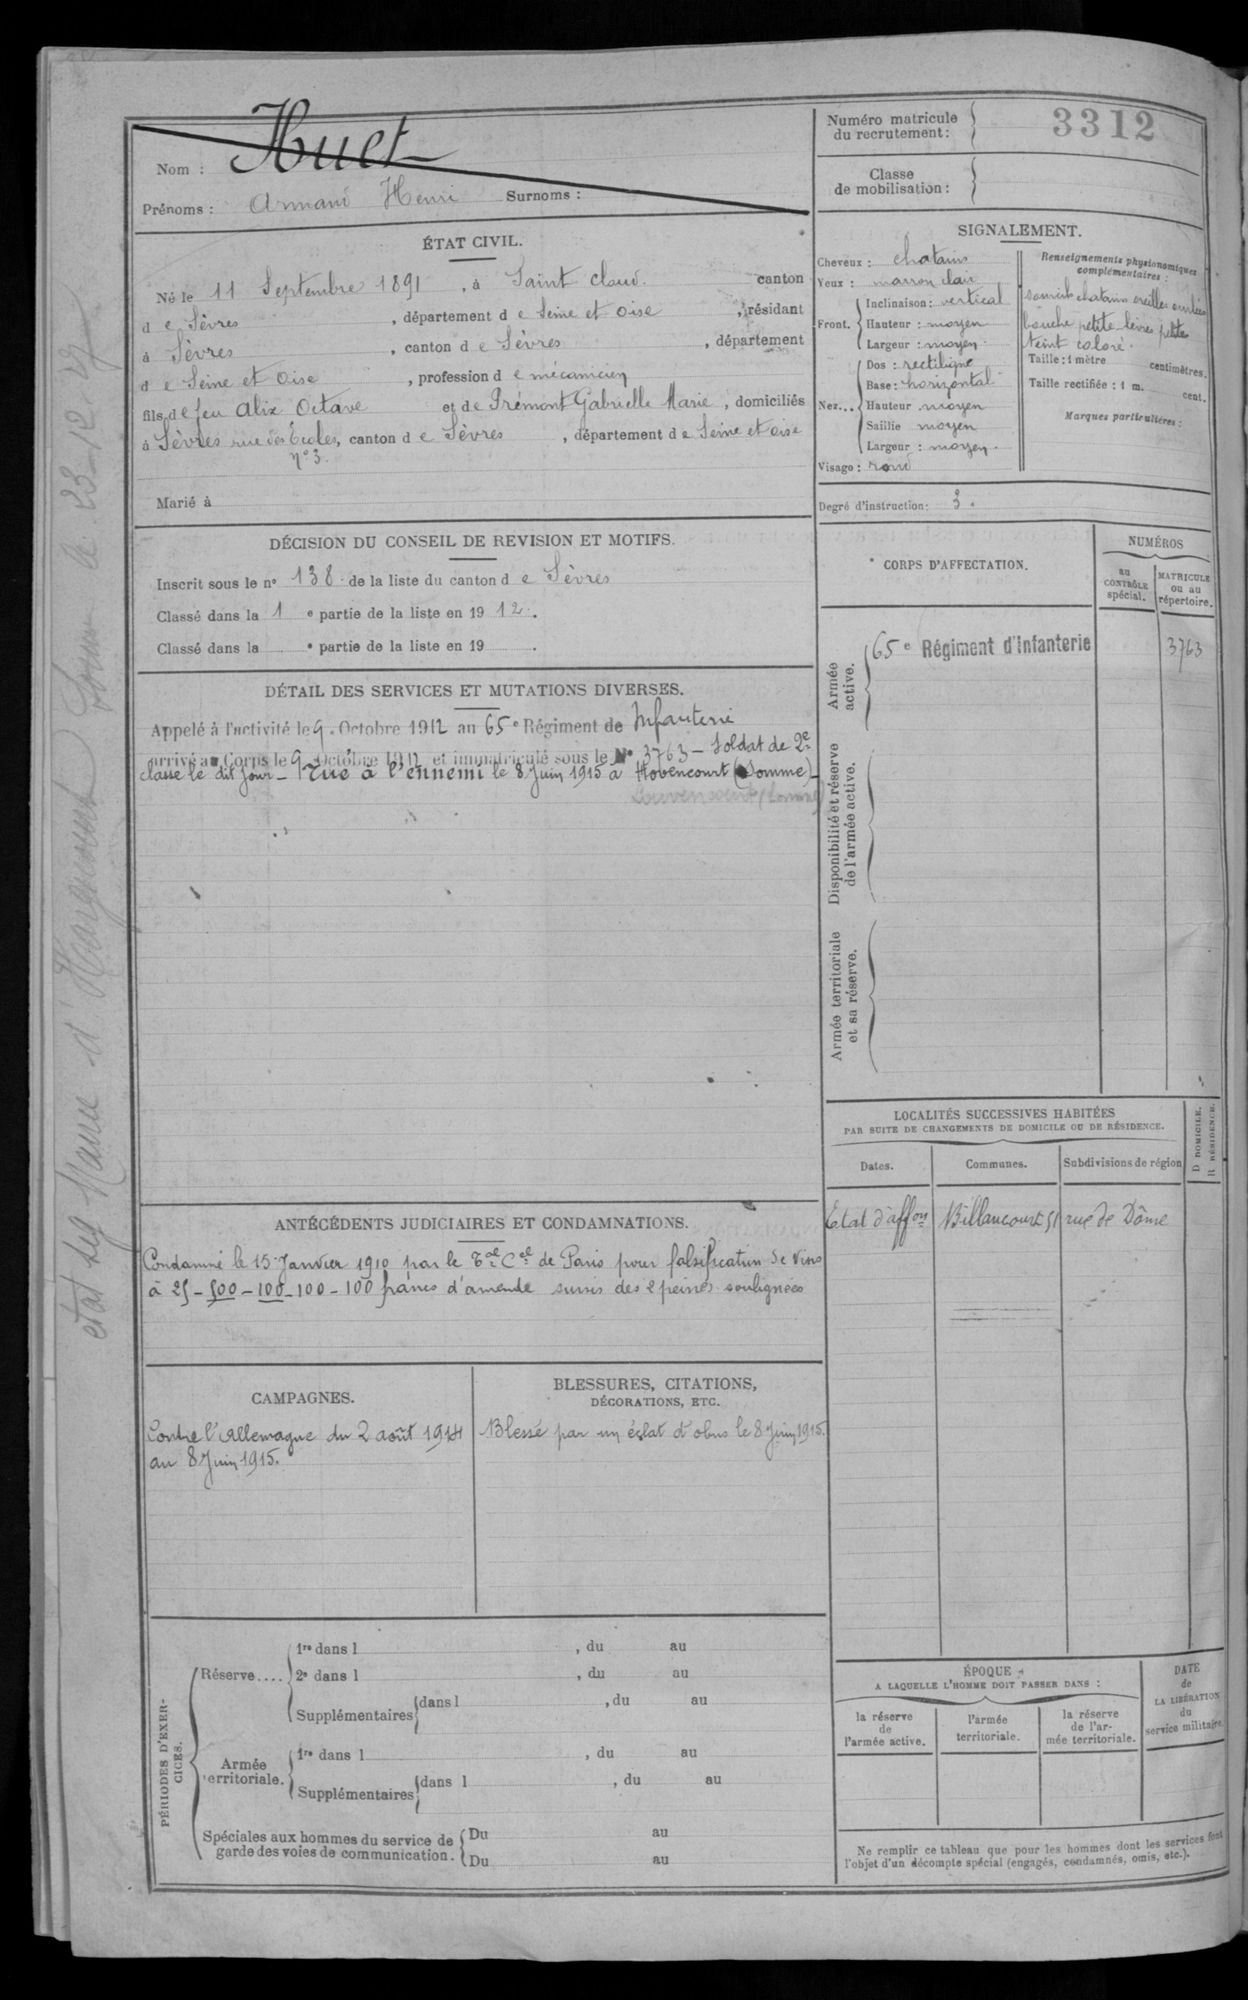 Nom : Huet
Prénoms : Armand Henri Surnoms :
Numéro matricule
du recrutement : 3312
Classe
de mobilisation :
ÉTAT CIVIL.
Né le 11 Septembre 1891, à Saint Cloud. canton
d e Sèvres, département d e Seine et Oise, résidant
à Sèvres, canton d e Sèvres, département
d e Seine et Oise, profession d e mécanicien
fils d e feu Alix Octave et de Prémont Gabrielle Marie, domiciliés
à Sèvres rue des Écoles, canton d e Sèvres, département d e Seine et oise
n° 3.
Marié à
SIGNALEMENT.
Cheveux : chatains
Yeux : marron clair
Front. Inclinaison : vertical
Hauteur : moyen
Largeur : moyen.
Nez... Dos : rectiligne
Base : horizontal
Hauteur moyen
Saillie moyen
Largeur : moyen.
Visage : rond
Renseignements physionomiques
complémentaires :
sourcils chatains oreilles
bouche petite lèvres petites
teint coloré.
Taille : 1 mètre centimètres.
Taille rectifiée : 1 m. cent.
Marques particulières :
Degré d'instruction : 3.
DÉCISION DU CONSEIL DE REVISION ET MOTIFS.
Inscrit sous le n° 138 de la liste du canton d e Sèvres
Classé dans la 1 e partie de la liste en 19 12.
Classé dans la e partie de la liste en 19 .
DÉTAIL DES SERVICES ET MUTATIONS DIVERSES.
Appelé à l'activité le 9 Octobre 1912 au 65e Régiment de Infanterie
arrivé au Corps le 9 Octobre 1912 et immatriculé sous le N° 3763 - Soldat de 2e
classe le dit jour - Tué à l'ennemi le 8 Juin 1915 à Hovencourt (Somme) -
Louvencourt (Somme)
CORPS D'AFFECTATION.
NUMÉROS
au
CONTRÔLE
spécial.
MATRICULE
ou au
répertoire.
Armée
active.
65e Régiment d'Infanterie 3763
Disponibilité et réserve
de l'armée active.
Armée territoriale
et sa réserve.
LOCALITÉS SUCCESSIVES HABITÉES
PAR SUITE DE CHANGEMENTS DE DOMICILE OU DE RÉSIDENCE.
D DOMICILE.
R RÉSIDENCE.
Dates. Communes. Subdivisions de région
Etat d'affon Billancourt 51 rue de Dôme
ANTÉCÉDENTS JUDICIAIRES ET CONDAMNATIONS.
Condamné le 15 Janvier 1910 par le Tal Cel de Paris pour falsification de vins
à 25 - 500 - 100 - 100 - 100 francs d'amende sursis des 2 peines soulignées
CAMPAGNES.
Contre l'Allemagne du 2 août 1914
au 8 Juin 1915.
BLESSURES, CITATIONS,
DÉCORATIONS, ETC.
Blessé par un éclat d'obus le 8 Juin 1915.
PÉRIODES D'EXER-
CICES.
Réserve.... 1re dans l , du au
2e dans l , du au
Supplémentaires dans l , du au
Armée
territoriale. 1re dans l , du au
Supplémentaires dans l , du au
Spéciales aux hommes du service de
garde des voies de communication. Du au
Du au
ÉPOQUE
A LAQUELLE L'HOMME DOIT PASSER DANS :
la réserve
de
l'armée active.
l'armée
territoriale.
la réserve
de l'ar-
mée territoriale.
DATE
de
LA LIBÉRATION
du
service militaire.
Ne remplir ce tableau que pour les hommes dont les services font
l'objet d'un décompte spécial (engagés, condamnés, omis, etc.).
Maire d'Hargicourt Somme le 23-12-27